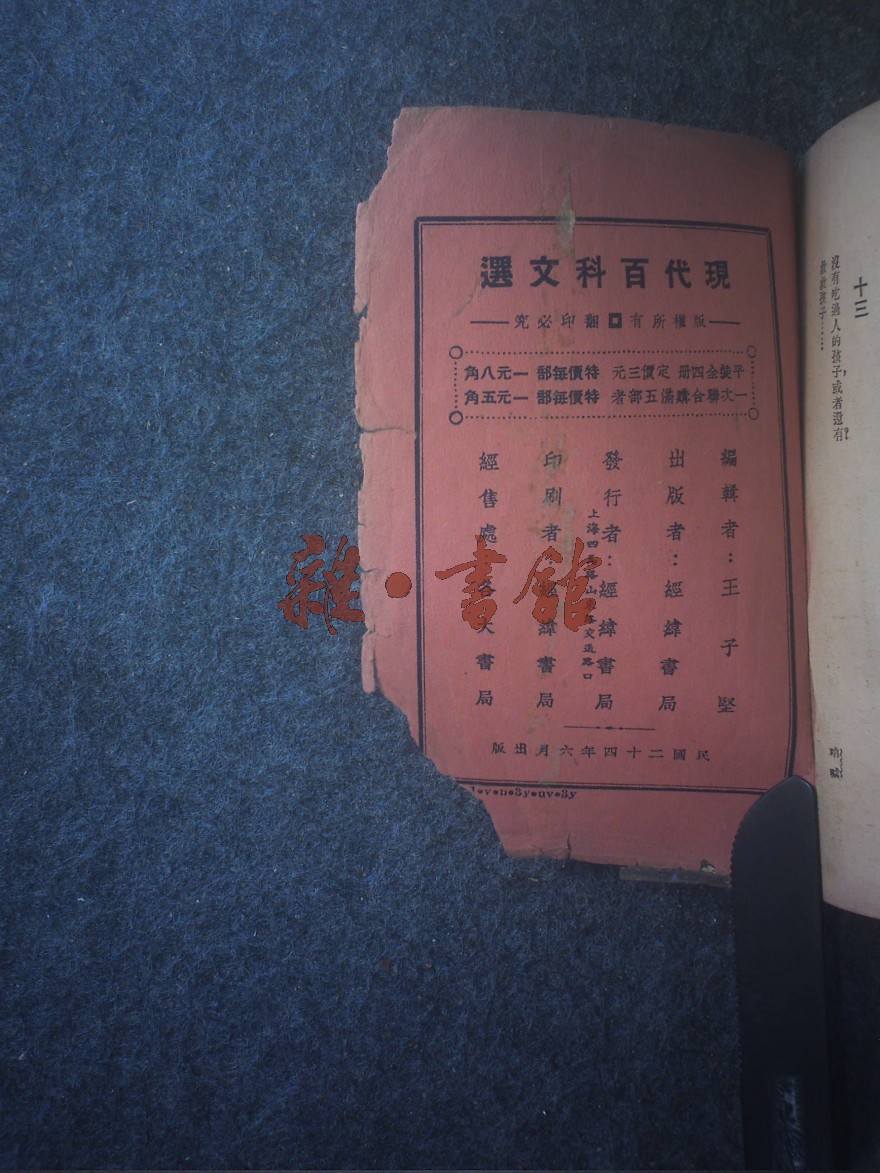 十三
沒有吃過人的孩子，或者還有？
救救孩子……
吶喊
現代百科文選
版權所有 翻印必究
平裝全四冊 定價三元 特價每部一元八角
一次聯合購滿五部者 特價每部一元五角
編輯者：王子堅
出版者：經緯書局
發行者：經緯書局
上海四馬路山 路交通路口
印刷者 緯書局
經售處 各大書局
民國二十四年六月出版
雜·書館